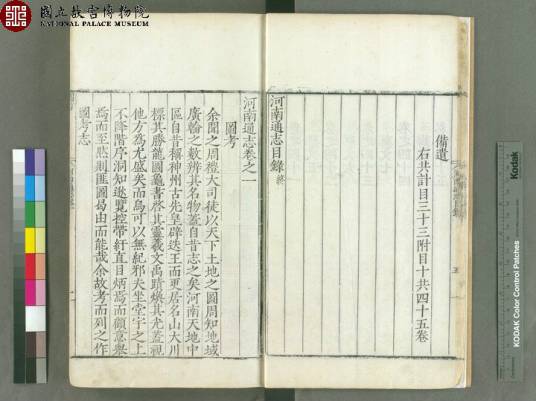 國立故宮博物院
NATIONAL PALACE MUSEUM
備遺
右共計目三十三附目十共四十五卷
河南通志目錄終
河南通志卷之一
圖考
余聞之周禮大司徒以天下土地之圖周知地域
廣輪之數辨其名物蓋自昔志之矣河南天地中
區自昔稱神州古先皇辟迭王而更居名山大川
標其勝龍圖龜書啓其靈羲文禹蹟煥其光蓋視
他方為尤盛矣而烏可以無紀邪夫坐堂宇之上
不降階序洞知遐覽控帶紆直目炳焉而顧意舉
焉而至然則匪圖曷由而能哉余故考而列之作
圖考志
Kodak
KODAK Color Control Patches